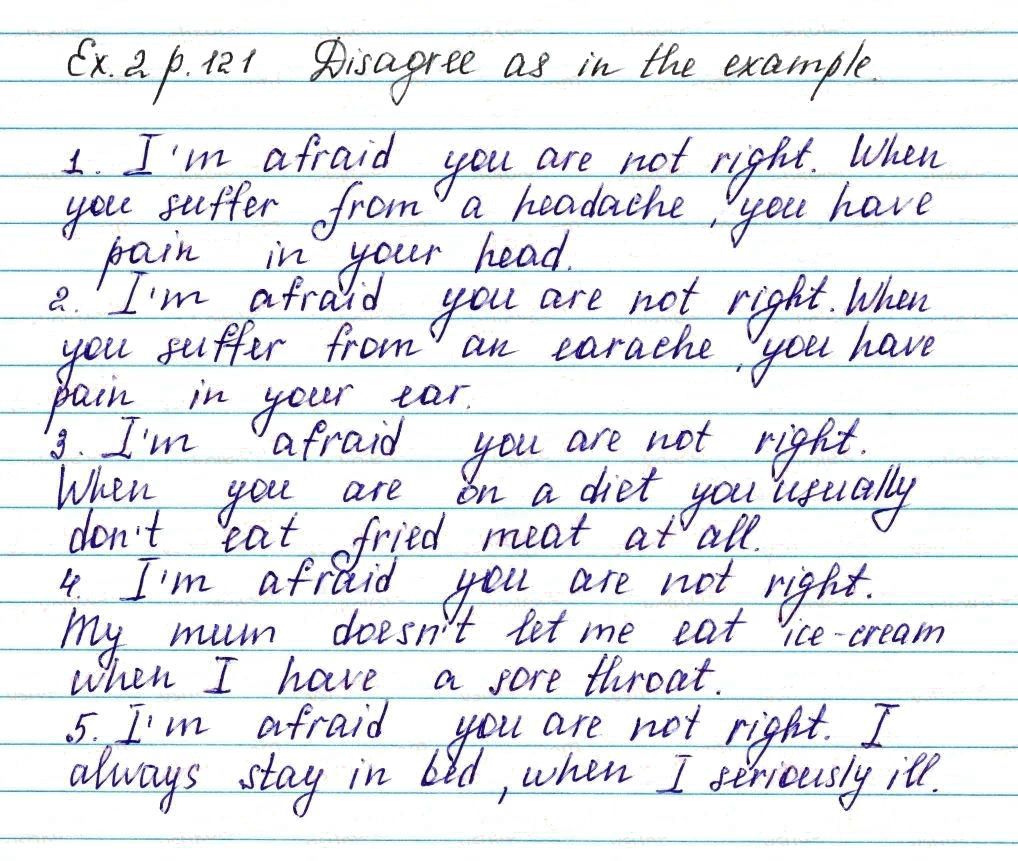 Ex. 2 p. 121 Disagree as in the example.
1. I'm afraid you are not right. When
you suffer from a headache, you have
pain in your head.
2. I'm afraid you are not right. When
you suffer from an earache, you have
pain in your ear.
3. I'm afraid you are not right.
When you are on a diet you usually
don't eat fried meat at all.
4. I'm afraid you are not right.
My mum doesn't let me eat ice-cream
when I have a sore throat.
5. I'm afraid you are not right. I
always stay in bed, when I seriously ill.